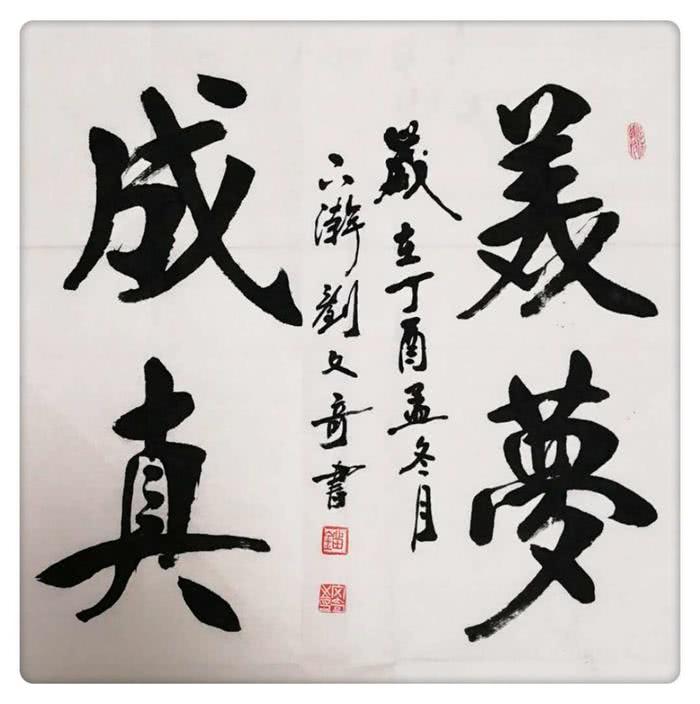 美夢
成真
歲在丁酉孟冬月
劉文奇書